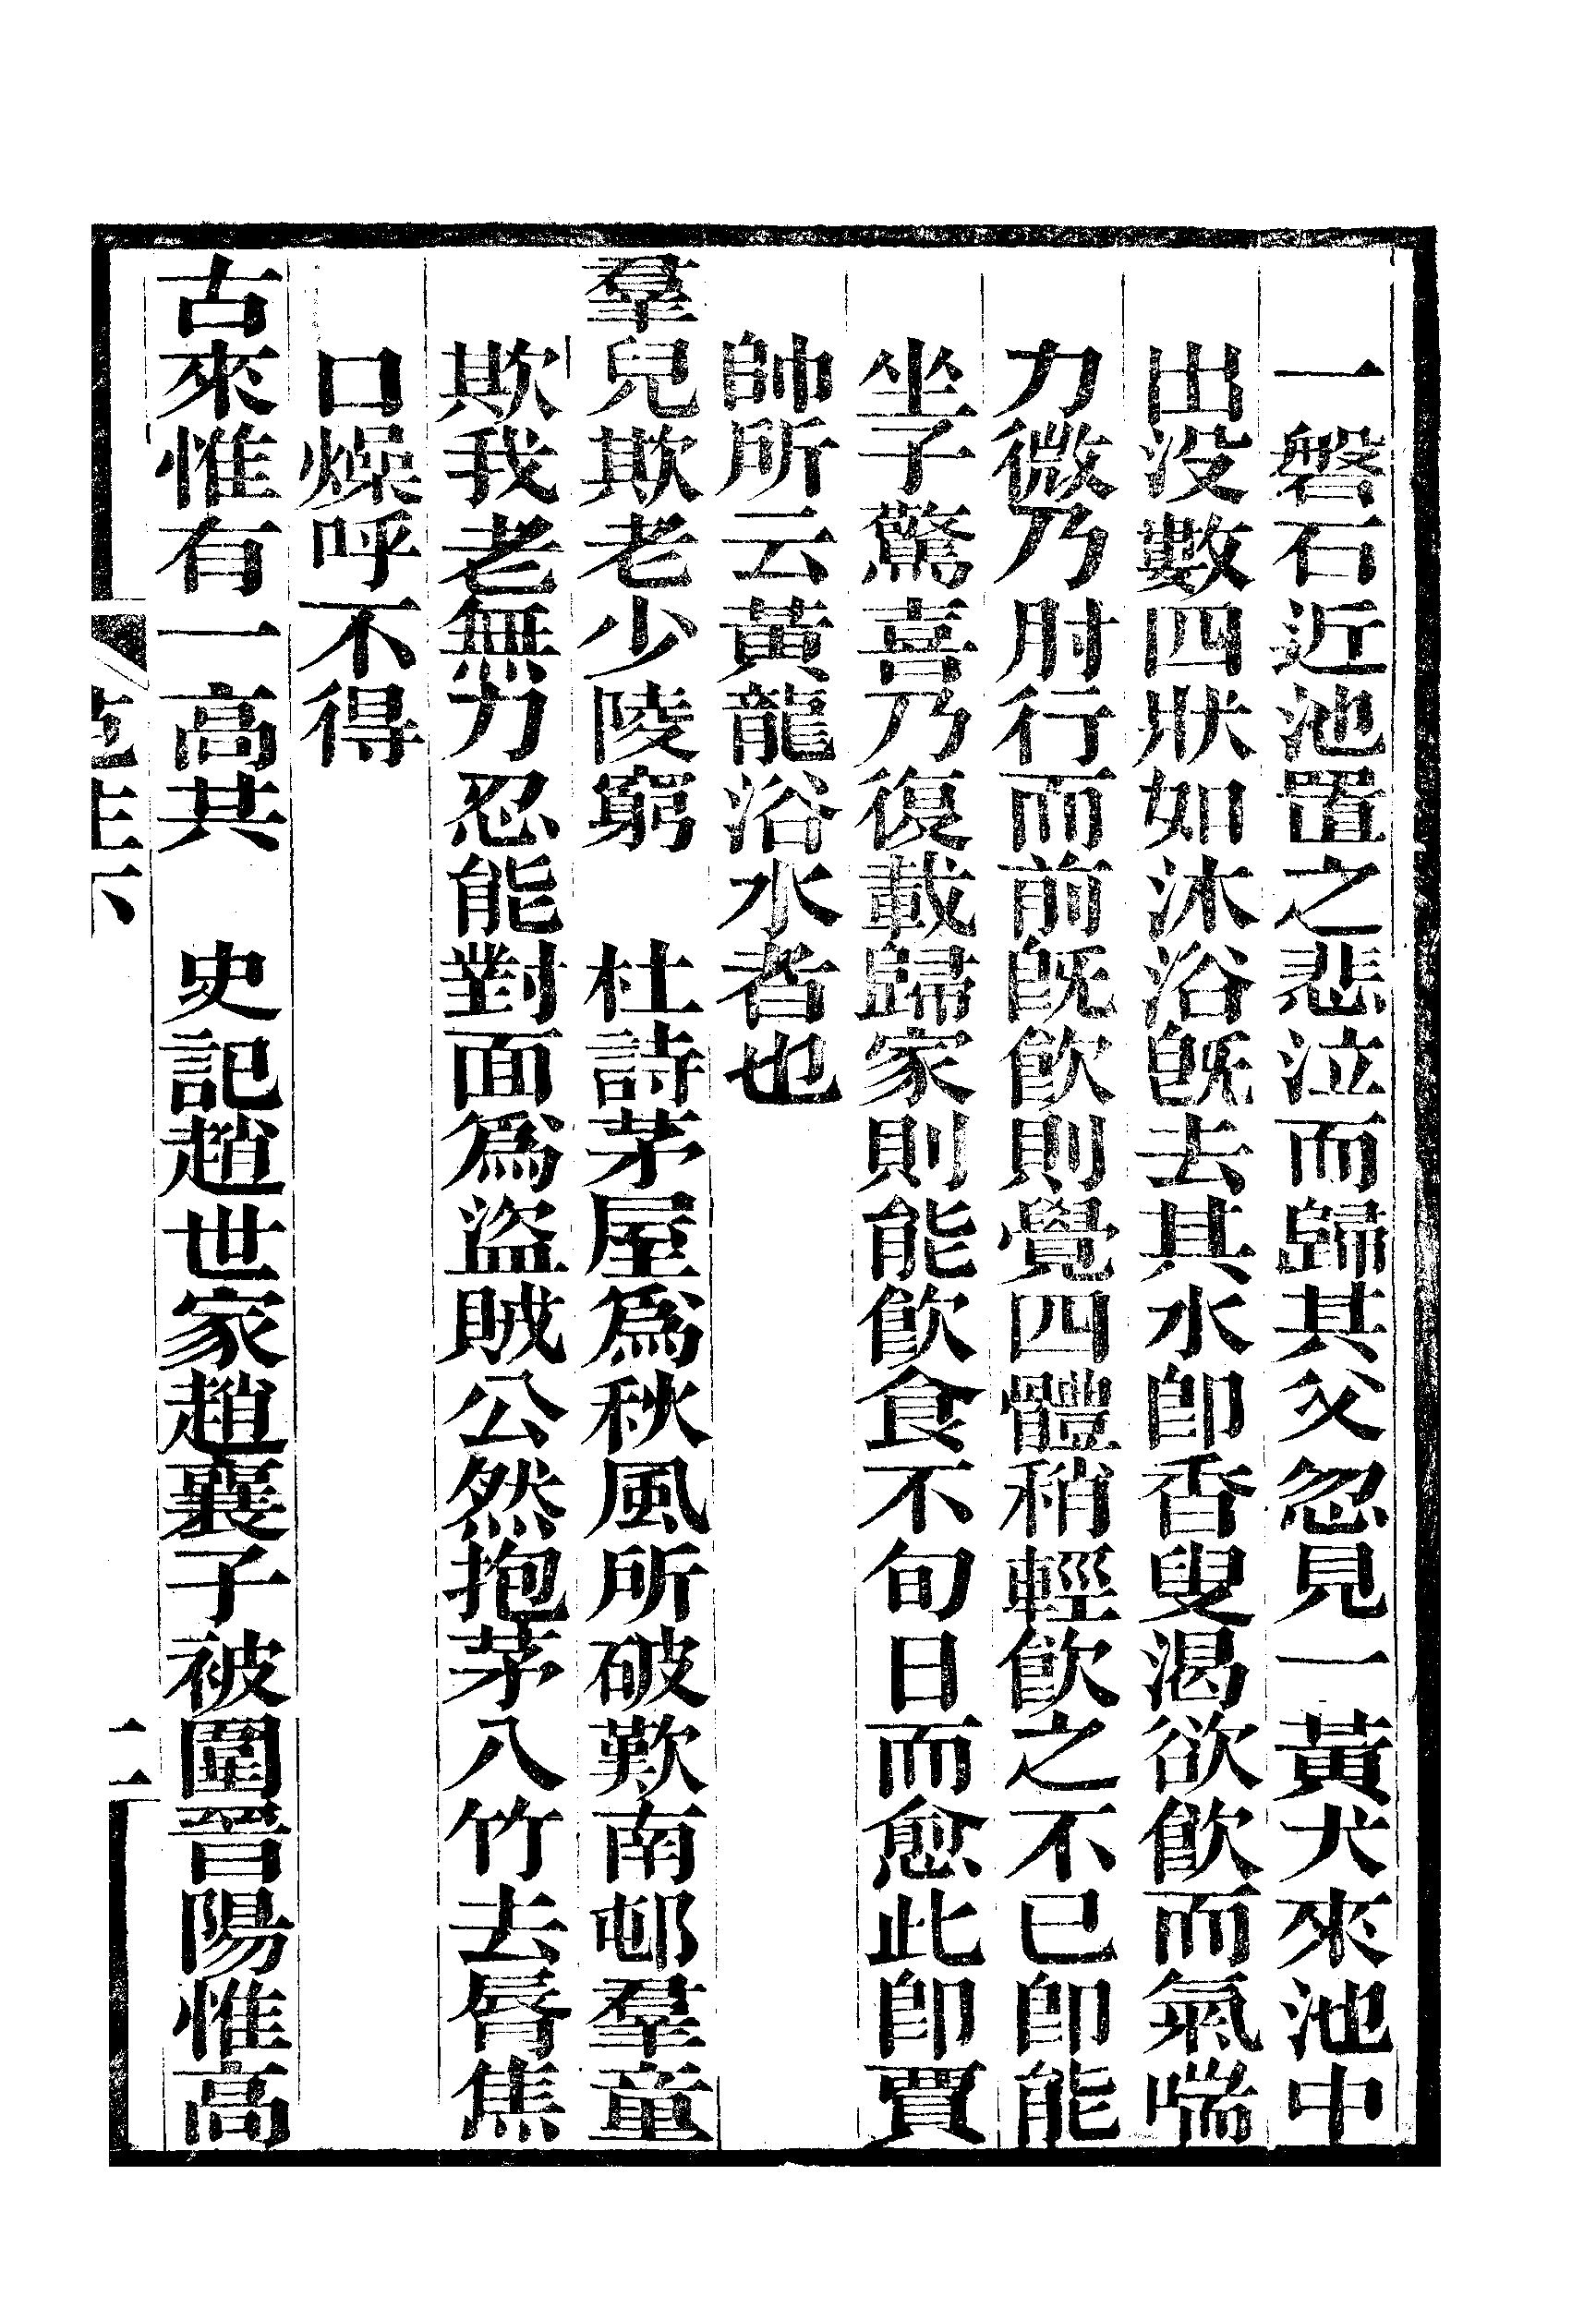 一磐石近池置之悲泣而歸其父忽見一黃犬來池中
出没數四狀如沐浴旣去其水卽香叟渴欲飮而氣喘
力微乃肘行而前旣飮則覺四體稍輕飮之不已卽能
坐子驚喜乃復載歸家則能飮食不旬日而愈此卽賈
帥所云黃龍浴水者也
羣兒欺老少陵窮　杜詩茅屋爲秋風所破歎南邨羣童
欺我老無力忍能對面爲盜賊公然抱茅入竹去脣焦
口燥呼不得
古來惟有一高共　史記趙世家趙襄子被圍晉陽惟高